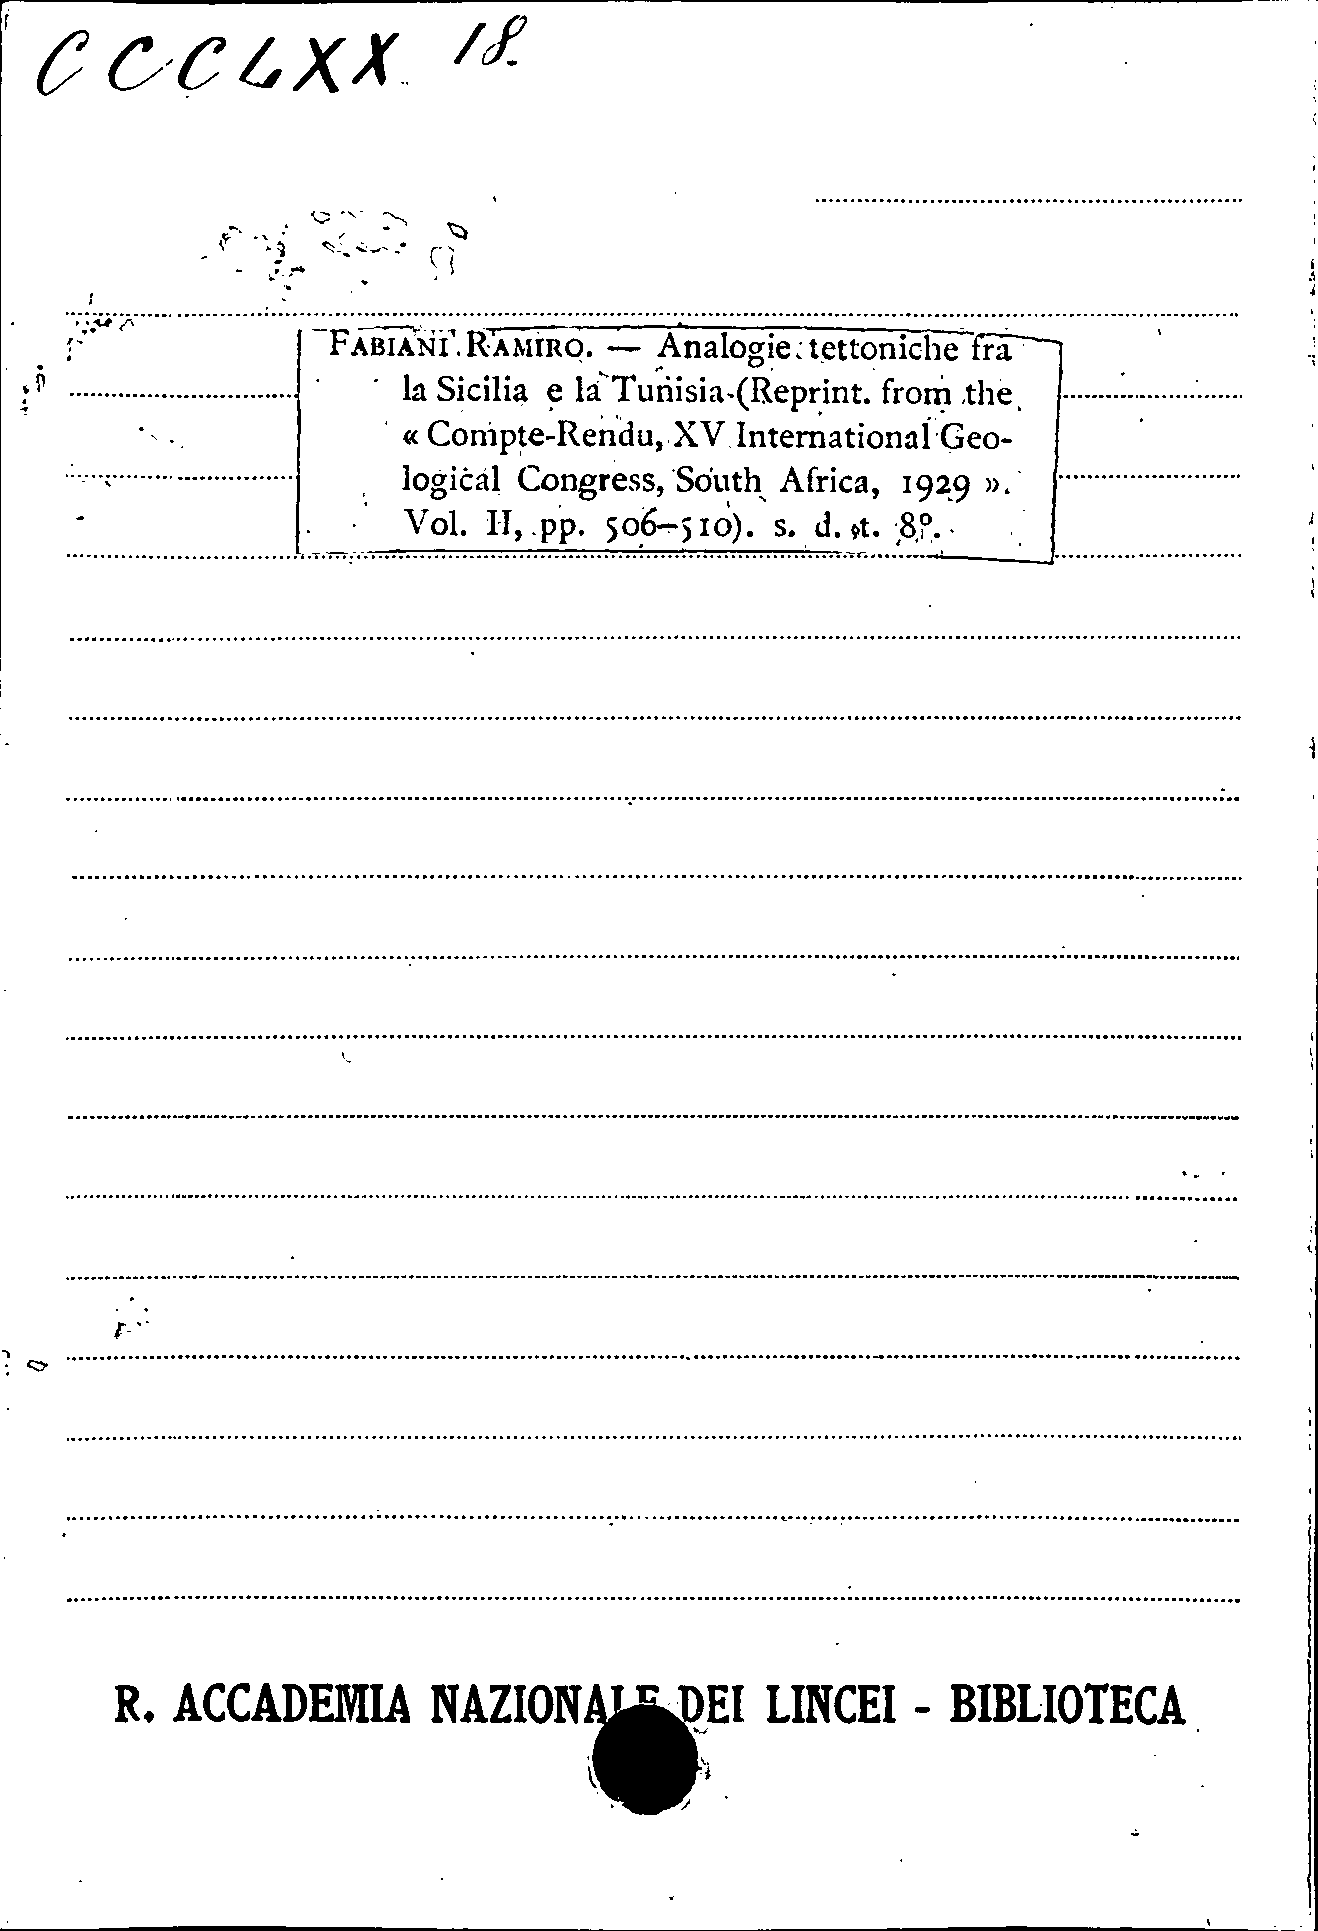 CCCLXX 18.
FABIANI RAMIRO. — Analogie tettoniche fra
la Sicilia e la Tunisia (Reprint. from the
« Compte-Rendu, XV International Geo-
logical Congress, South Africa, 1929 ».
Vol. II, pp. 506–510). s. d. et. 8º.
R. ACCADEMIA NAZIONALE DEI LINCEI - BIBLIOTECA